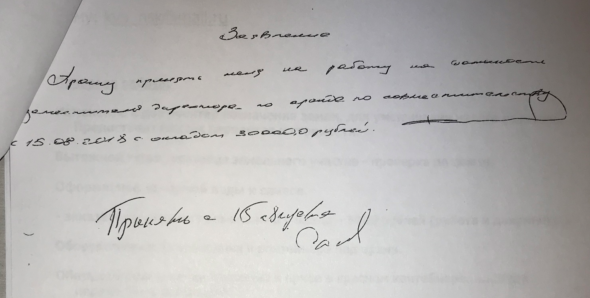 Заявление
Прошу принять меня на работу на должность
заместителя директора по аренде по совместительству
с 15.08.2018 с окладом 30000,0 рублей.
Принять с 15 августа